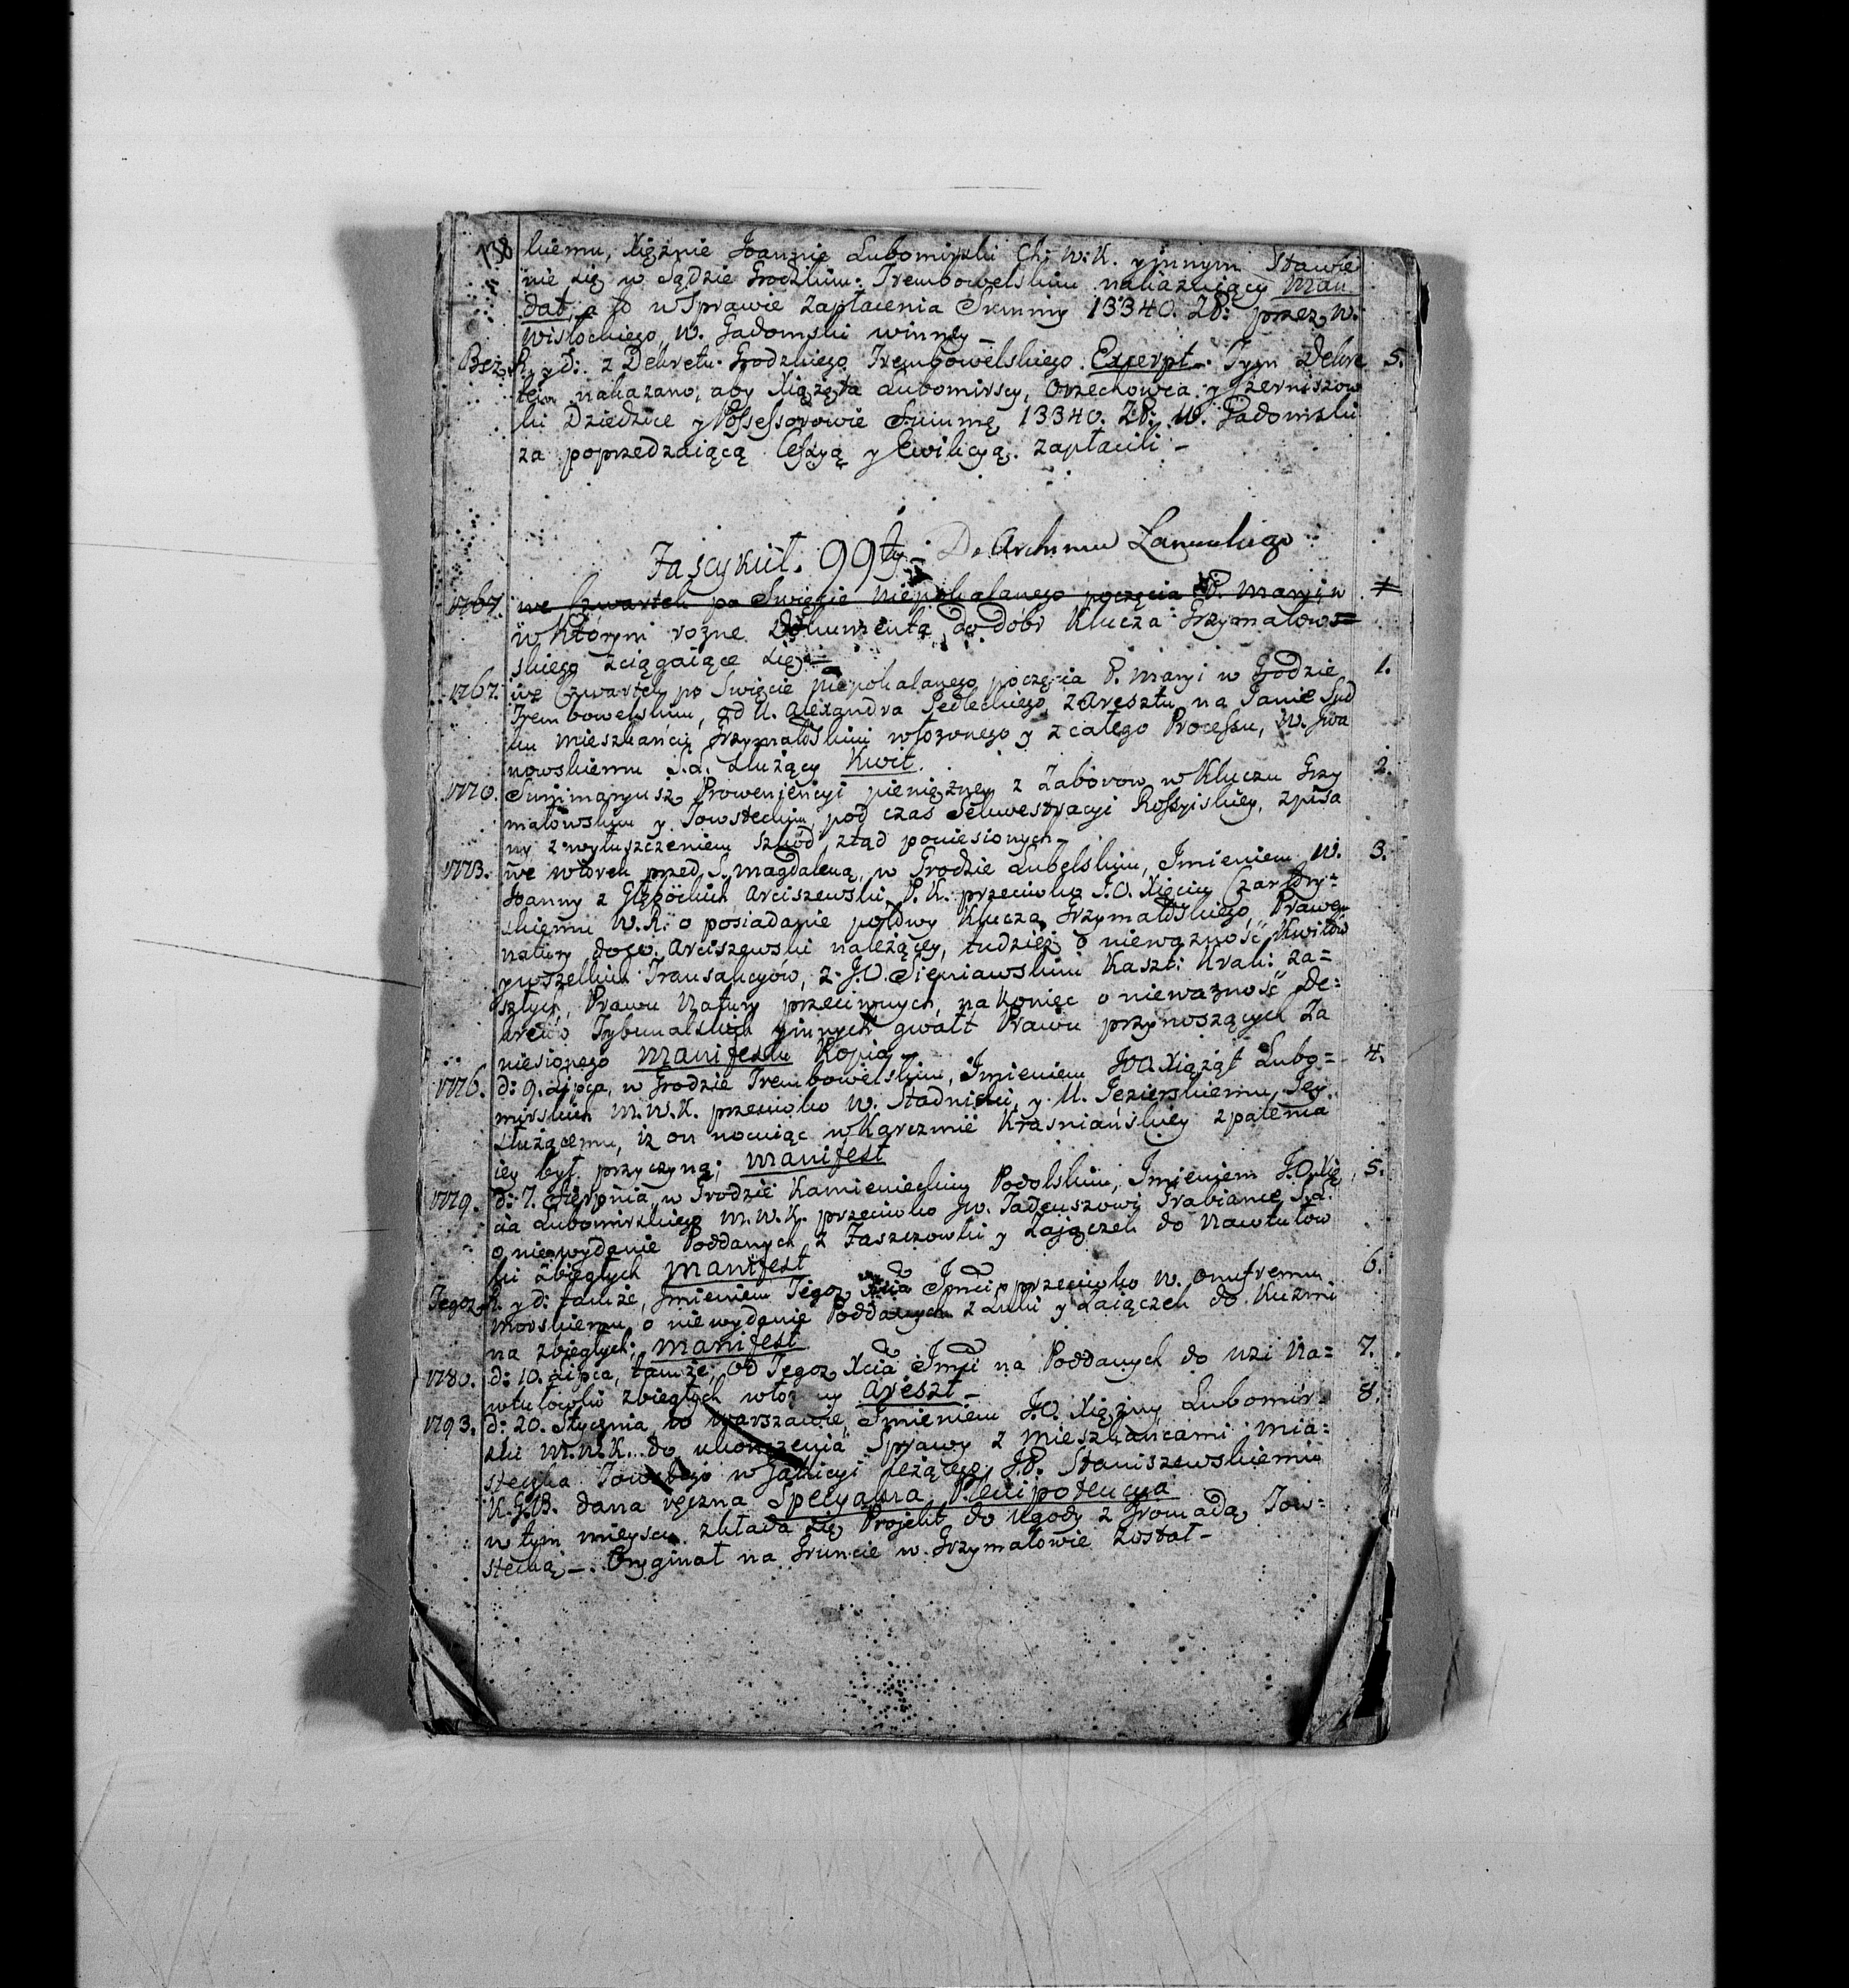 138 skiemu, Xiężnie Joannie Lubomirski Ch: W: K. y innym Stawie
nie się w Sądzie Grodzkim Trembowelskim nakazuiący Man
dat, a to w Sprawie zapłacenia Summy 13340. Zł: przez W.
Wisłockiego, W. Gadomski winney —
Bez R. y d: z Dekretu Grodzkiego Trembowelskiego Excerpt. Tym Dekre 5.
tem nakazano, aby Xiążęta Lubomirscy, Orzechowca y Czerniszow
ki Dziedzice y Possessorowie Summę 13340. Zł: W. Gadomski
za poprzedzaiącą Cessyą y Ewikcyą zapłacili —
Fascykuł. 99ty — Do Archiwu Łancuckiego
1767. we Czwartek po Swięcie Niepokalanego poczęcia P. Maryi w
w którym rożne Dokumenta, do dobr Klucza Grzymałow=
skiego sciągaiące się —
1767. we Czwartek po Swięcie Niepokalanego poczęcia P. Maryi w Grodzie 1.
Trembowelskim, od U. Alexandra Sedleckiego, z Aresztu na Janie
ku mieszkańcu Grzymałskim włożonego y z całego Processu, W. Iwa
nowskiemu S. d. służący Kwit.
1770. Summaryusz Prowenjencyi pieniężney z Zaborow w Kluczu Grzy 2.
małowskim y Towsteckim pod czas Sekwestracyi Rossyiskiey, zpisa
ny z wyłuszczeniem szkód ztąd poniesionych —
1773. we wtorek przed S. Magdaleną, w Grodzie Lubelskim, Imieniem W. 3.
Joanny z Głębockich Arciszewski P. K. przeciwko J. O. Xięciu Czartory=
skiemu W. R. o posiadanie połowy Klucza Grzymałskiego, Prawem
natury do W. Arciszewski należącey, tudzież o nieważność Kwitów
y wszelkich Transakcyów, z J. O. Sieniawskimi Kaszt: Krak: za=
szłych, Prawu Natury przeciwnych, nakoniec o nieważność De=
kretów Trybunalskich y innych gwałt Prawu przynoszących Za
niesionego Manifestu Kopia —
1776. d: 9. Lipca, w Grodzie Trembowelskim, Imieniem JOO. Xiążąt Lubo= 4.
mirskich M. W. K. przeciwko W. Stadnicki, y U. Jezierskiemu, Jey
służącemu, iż on nocuiąc w Karczmie Krasniańskiey zpalenia
iey był przyczyną; Manifest
1779. d: 7. Sierpnia, w Grodzie Kamienieckim Podolskim, Imieniem J. O. Xię 5.
cia Lubomirskiego M. W. K. przeciwko JW. Tadeuszowi Grabiance S. L.
o niewydanie Poddanych z Faszczowki y Zaiączek do Nawtułow
ki zbiegłych Manifest
Tegoż R. y d: tamże, Imieniem Tegoż Xcia Jmci przeciwko W. Onufremu 6.
Morskiemu, o niewydanie Poddanych z Łuki y Zaiączek do Kuzmi
na zbiegłych; Manifest
1780. d: 10. Lipca, tamże, od Tegoż Xcia Jmci na Poddanych do wsi Na= 7.
wtułowki zbiegłych włożony Areszt —
1793. d: 20. Stycznia, w Warszawie, Imieniem J. O. Xiężny Lubomir= 8.
ski M. W. K. do ukończenia Sprawy z mieszkańcami mia=
steczka Towstego w Gallicyi leżącego, J. P. Staniszewskiemu
K. G. B. dana ręczna Specyalna Plenipotencya
w tym mieyscu zkłada się Projekt do Ugody z Gromadą Tow=
stecką —. Oryginał na Gruncie w Grzymałowie został —